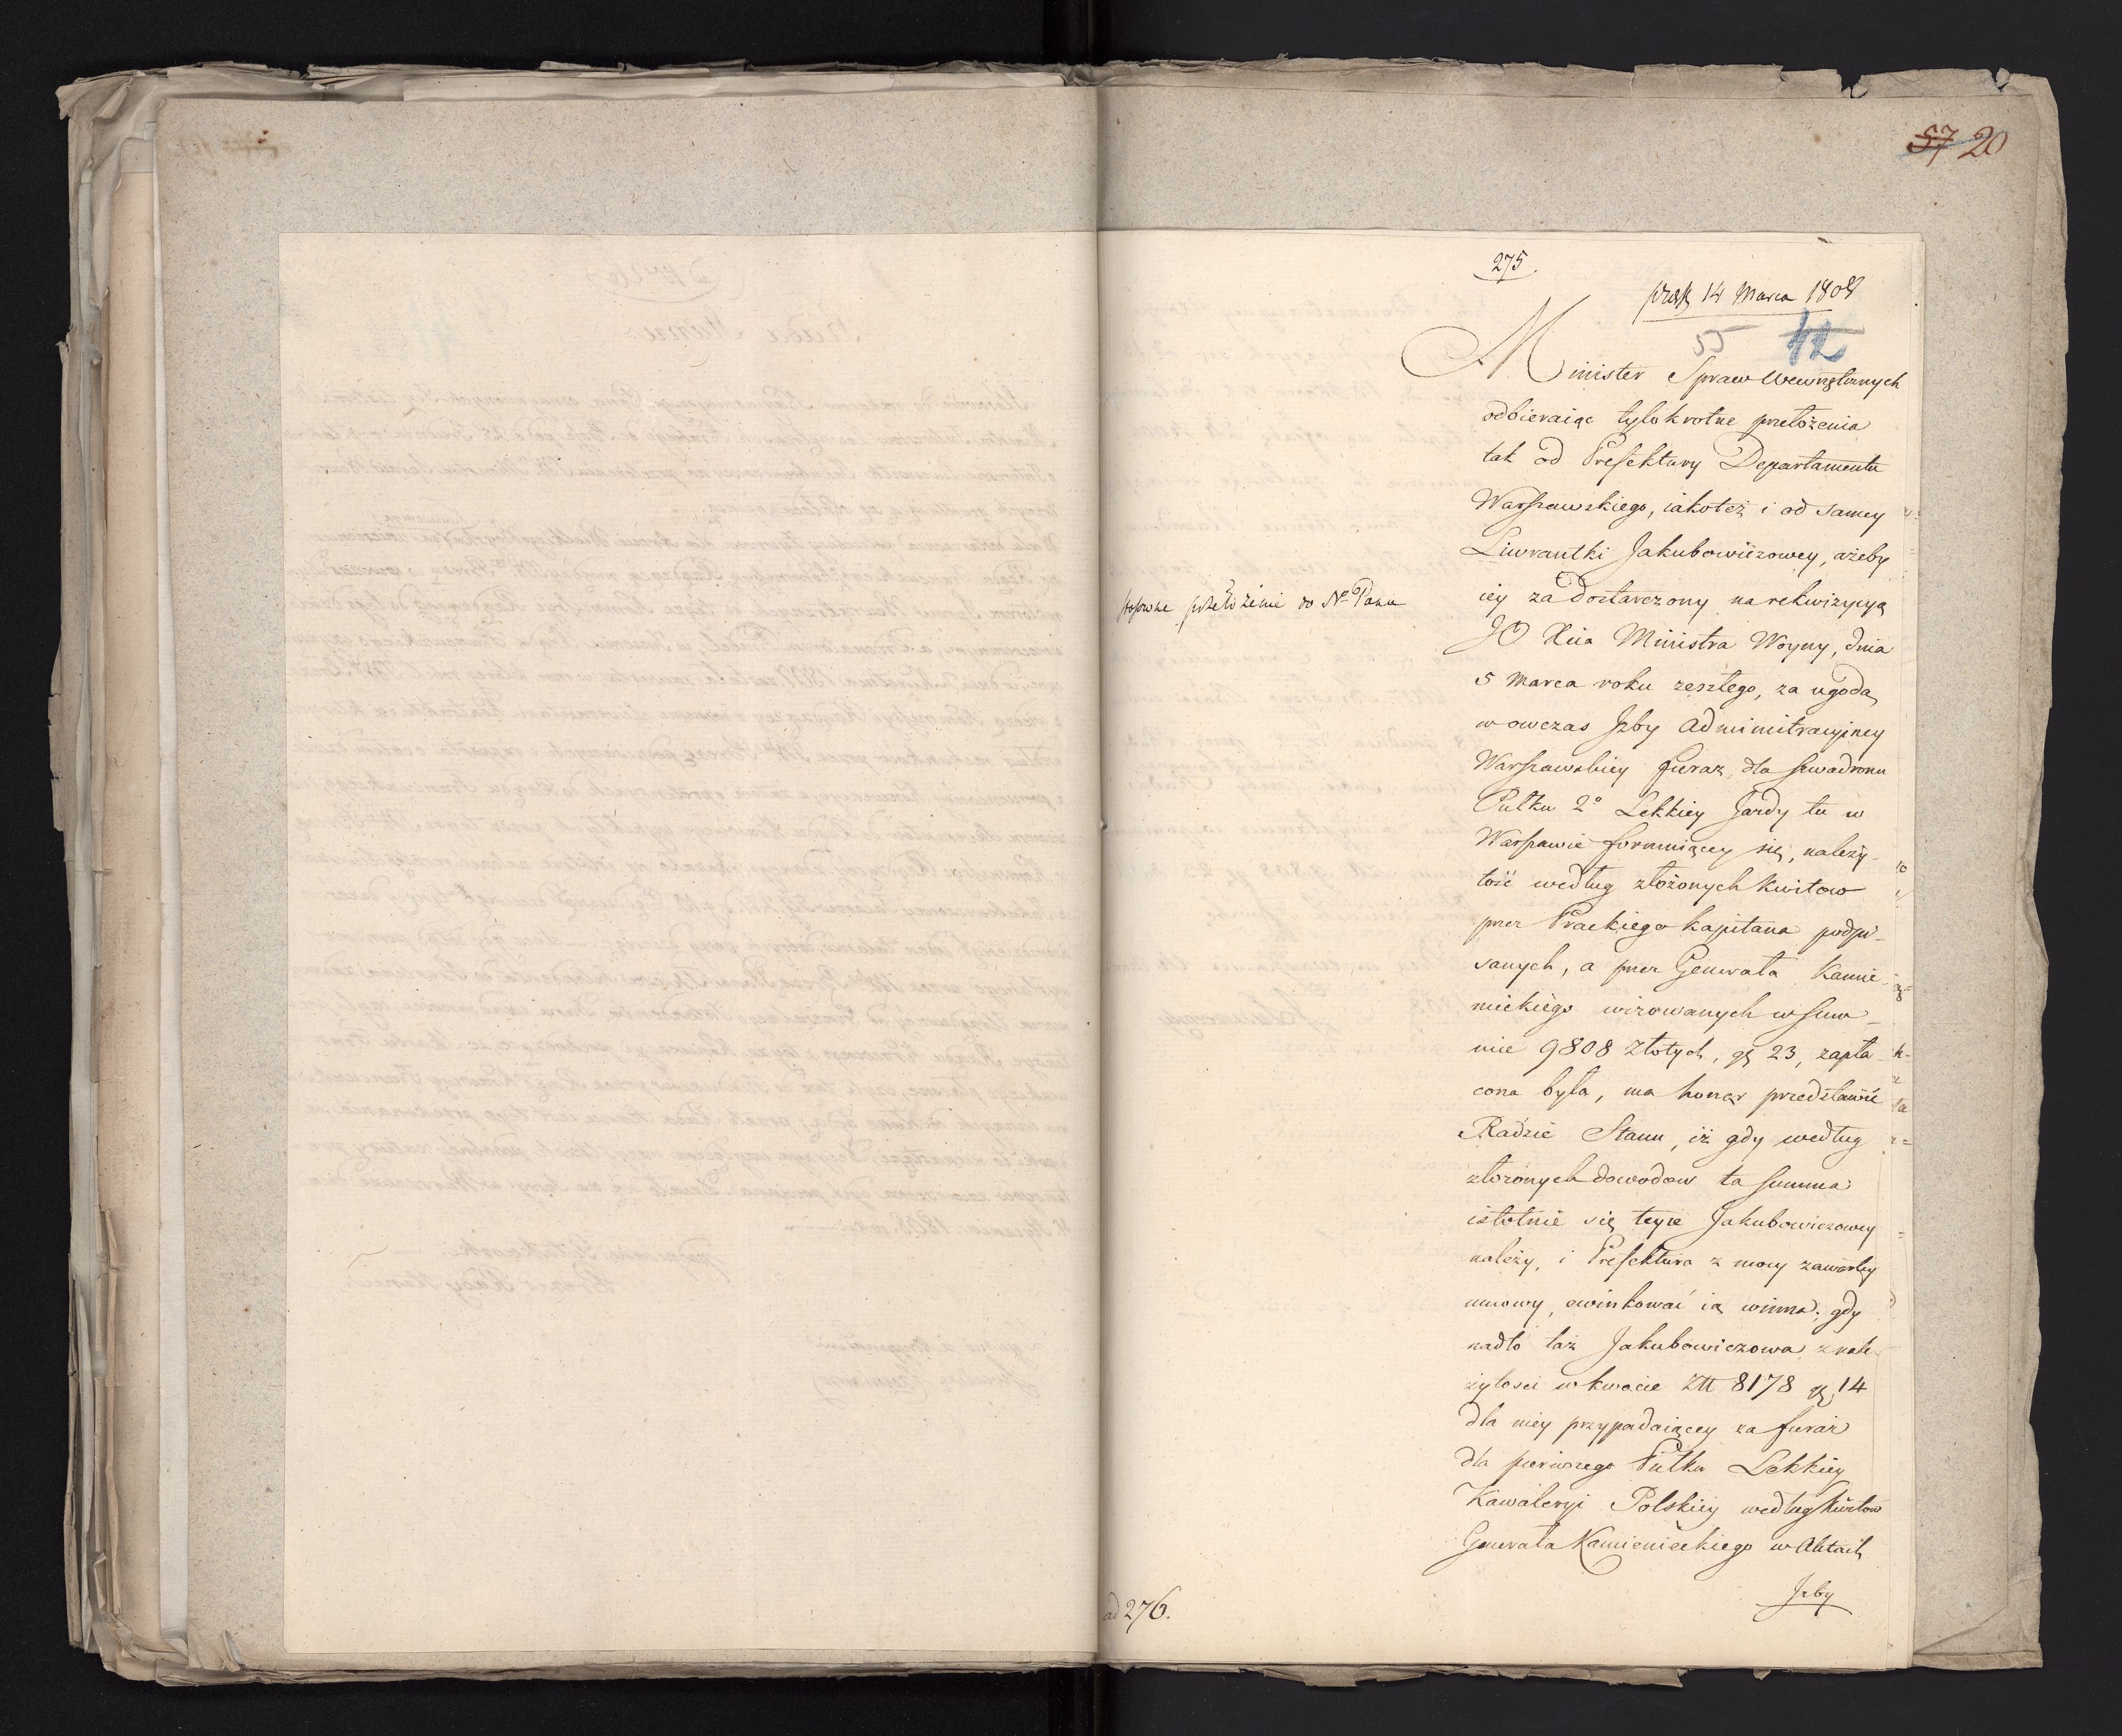 57 20
275.
14 Marca 1808
55 42
Minister Spraw Wewnętrznych
odbieraiąc tylokrotne przełożenia
tak od Prefektury Departamentu
Warszawskiego, iakoteż i od samey
Liwrantki Jakubowiczowey, ażeby
iey za dostarczony na rekwizycyą
JO Xcia Ministra Woyny, dnia
5 Marca roku zeszłego, za ugodą
wowczas Izby Administracyiney
Warszawskiey furaż, dla szwadronu
Pułku 2º Lekkiey Jazdy tu w
Warszawie formuiącey się, należy-
tość według złożonych kwitow
przez Kapitana podpi-
sanych, a przez Generała Kamie-
nieckiego wizowanych w sum-
mie 9808 złotych, gr 23, zapła-
cona była, ma honor przedstawić
Radzie Stanu, iż gdy według
złożonych dowodow ta summa
istotnie się teyże Jakubowiczowey
należy, i Prefektura z mocy zawartey
umowy, ewinkować ią winna; gdy
nadto taż Jakubowiczowa z nale-
żytosci w kwocie Złł 8178 gr 14
dla niey przypadaiącey za furaż
dla pierwszego Pułku Lekkiey
Kawaleryi Polskiey według kwitow
Generała Kamienieckiego w Aktach
Izby
stosowne przełożenie do Nº Pana
ad 276.